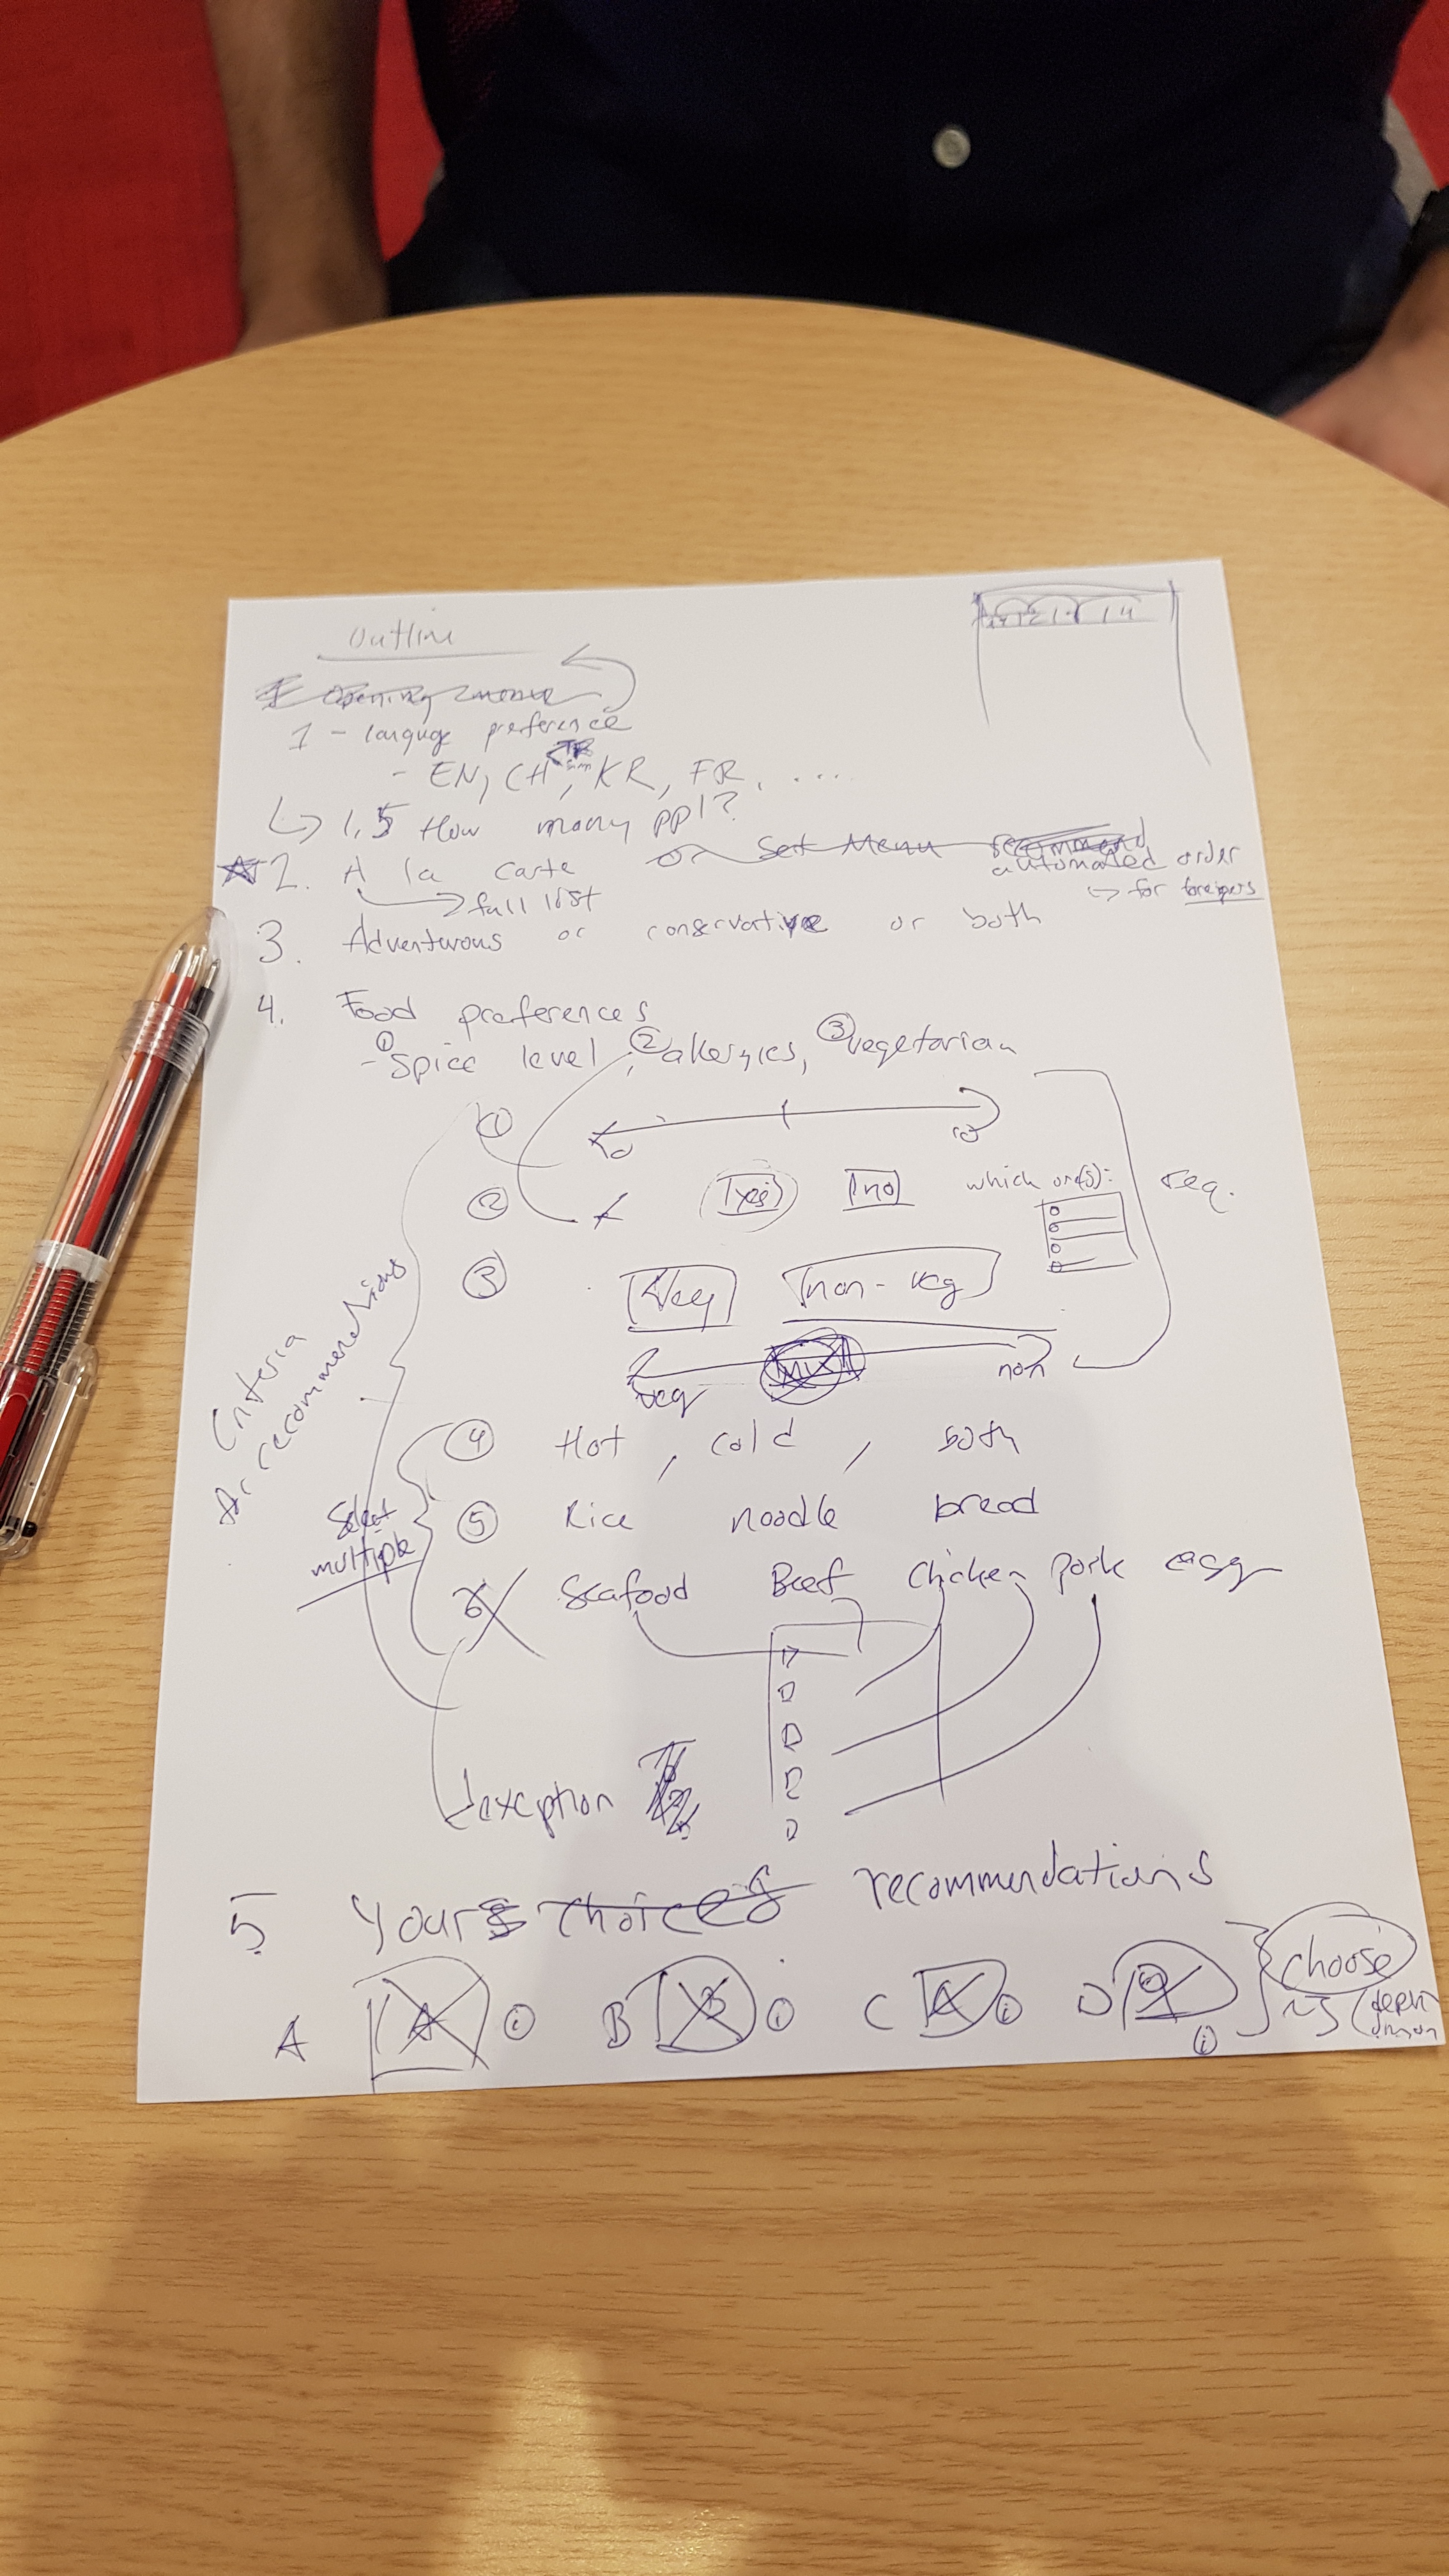 outline
1 - languge preference
- EN, CH, KR, FR, ....
1.5 How many ppl?
2. A la carte or Set Menu automated order
full list
for foreigners
3. Adventurous or conservative or both
4. Food preferences
- ① Spice level, ② allergies, ③ vegetarian
①
0 10
② yes no which one(s):
req.
③ Veg non-veg
veg non
Criteria for recommendations
④ Hot, cold, both
⑤ Rice noodle bread
Select multiple
6 Seafood Beef chicken pork egg
exception
5 Your choices recommendations
A A i B B i C i D i
choose